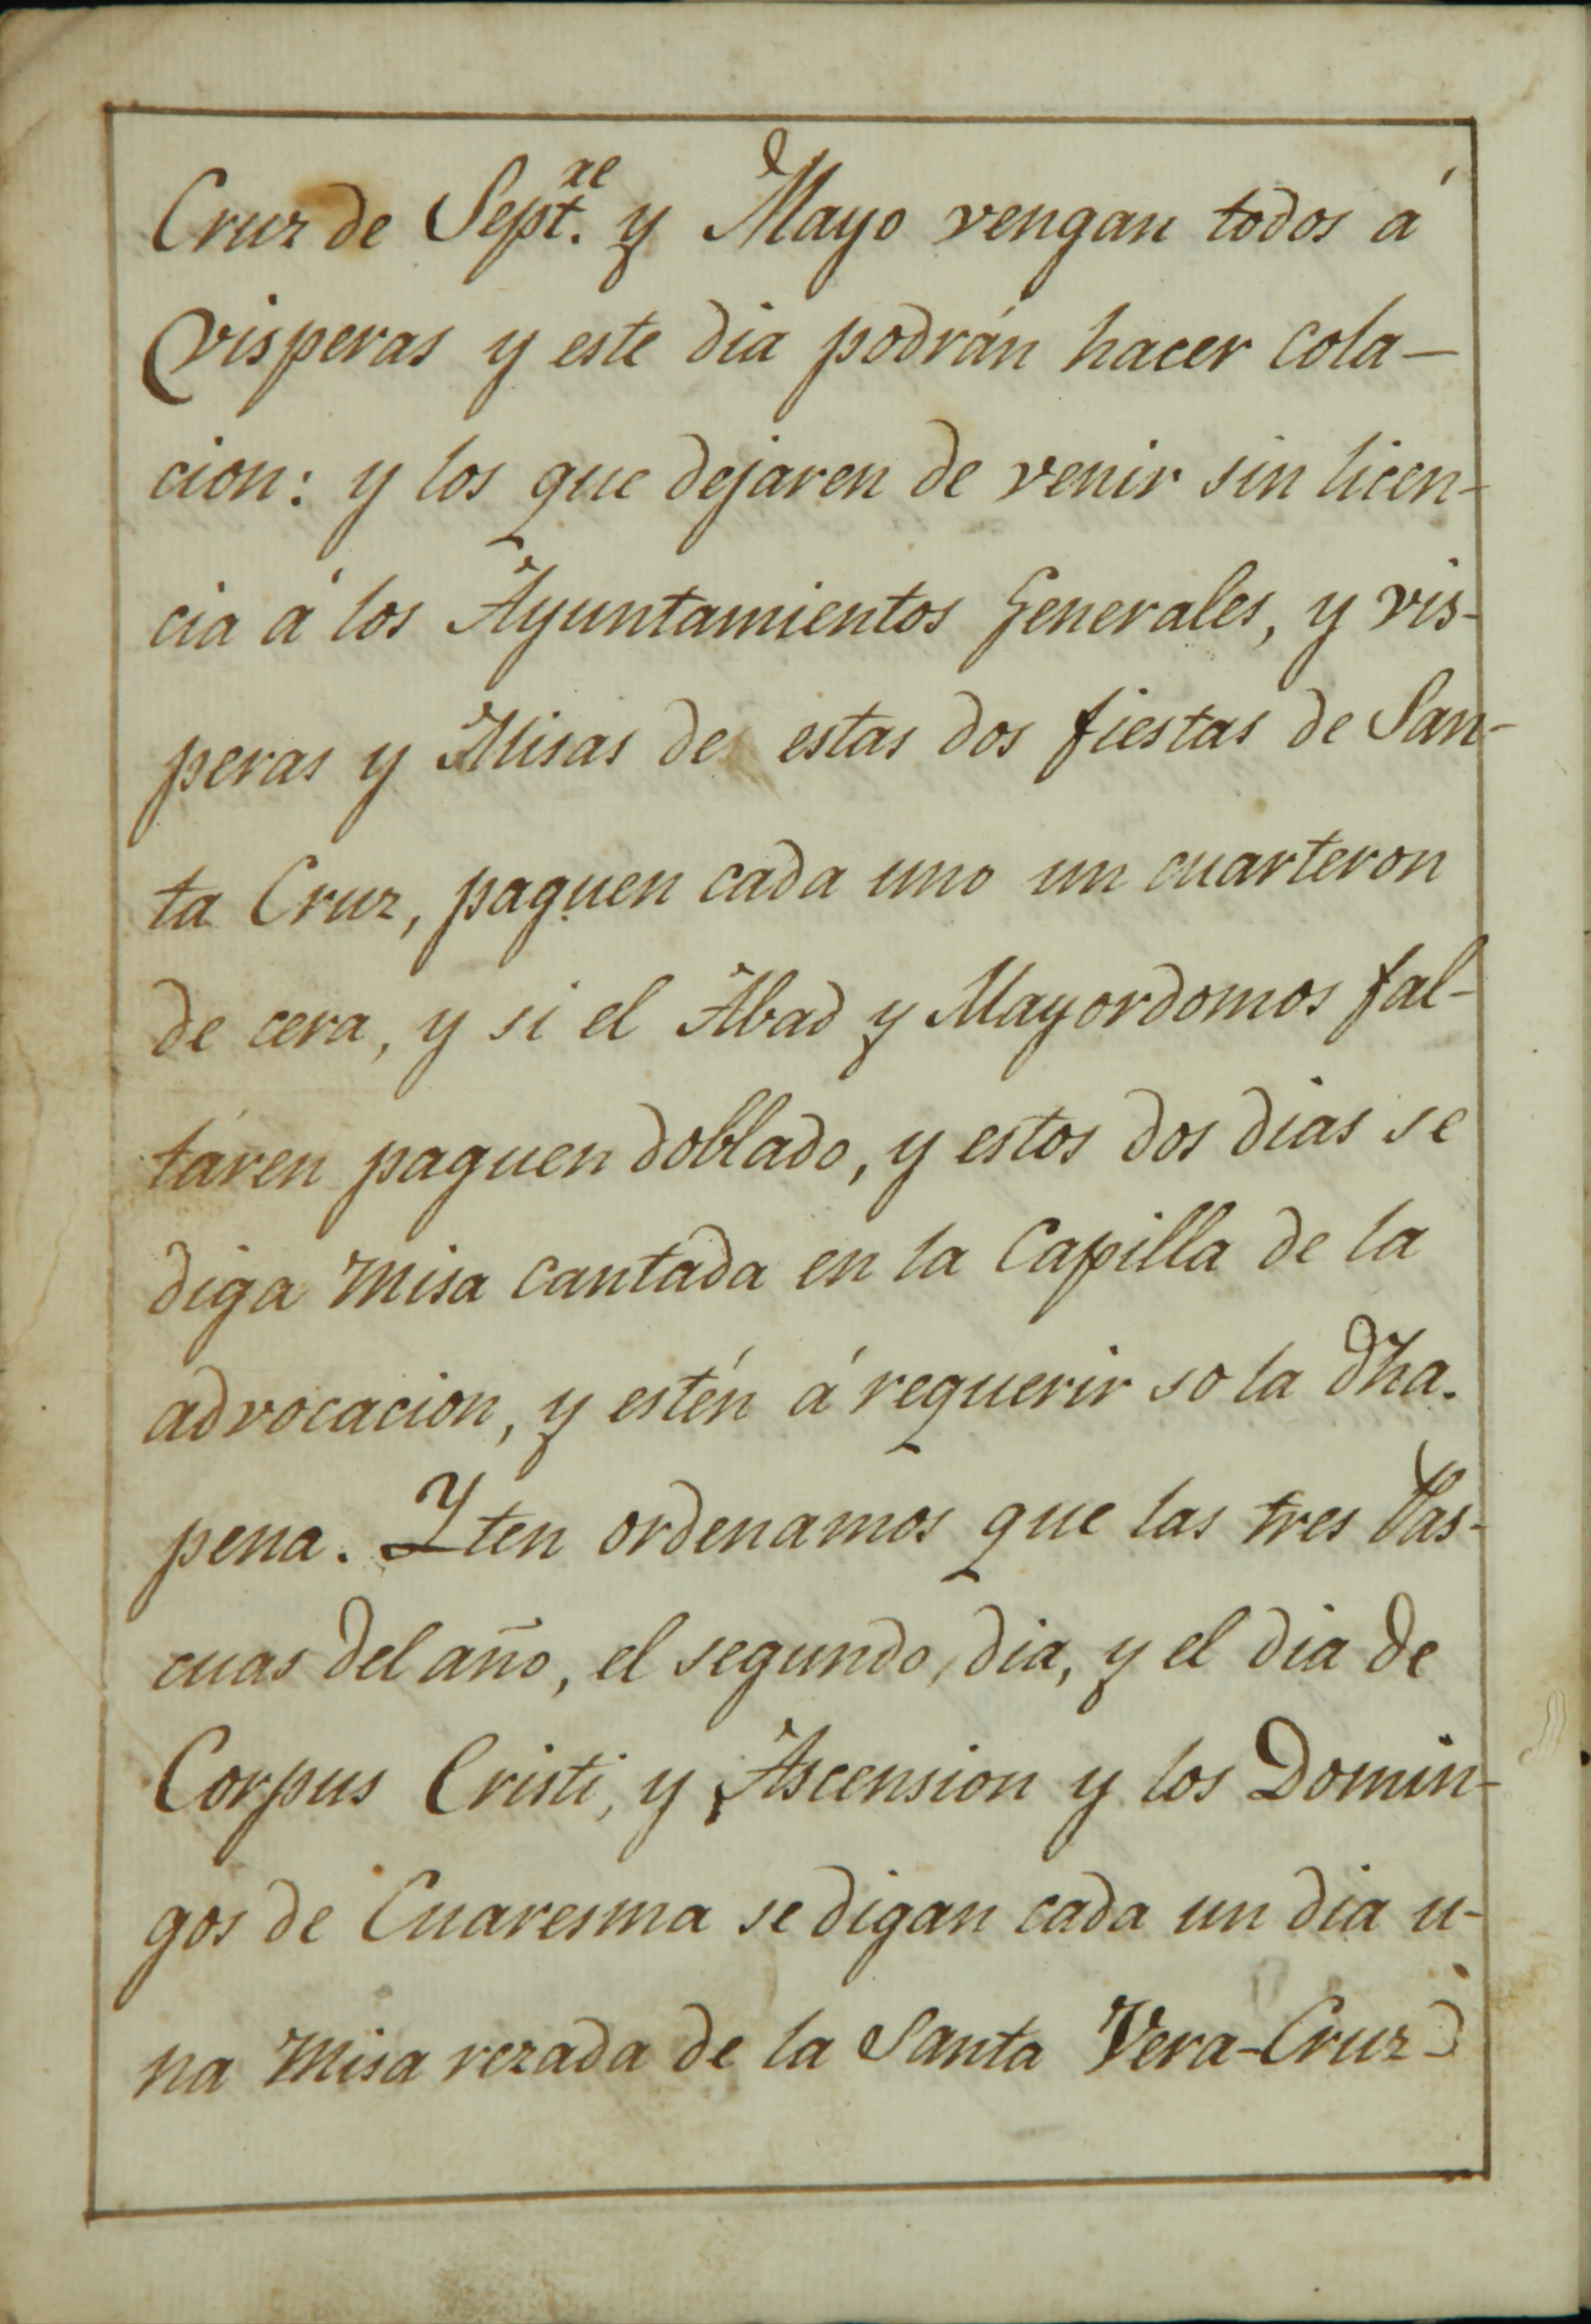 Cruz de Sept.re y Mayo vengan todos á
visperas y este dia podrán hacer cola-
cion: y los que dejaren de venir sin licen-
cia á los Ayuntamientos Generales, y vis-
peras y Misas de estas dos fiestas de San-
ta Cruz, paguen cada uno un cuarteron
de cera, y si el Abad y Mayordomos fal-
táren paguen doblado, y estos dos dias se
diga Misa cantada en la Capilla de la
advocacion, y estén á requerir so la dha.
pena. Yten ordenamos que las tres Pas-
cuas del año, el segundo dia, y el dia de
Corpus Cristi, y Ascension y los Domin-
gos de Cuaresma se digan cada un dia u-
na Misa rezada de la Santa Vera-Cruz